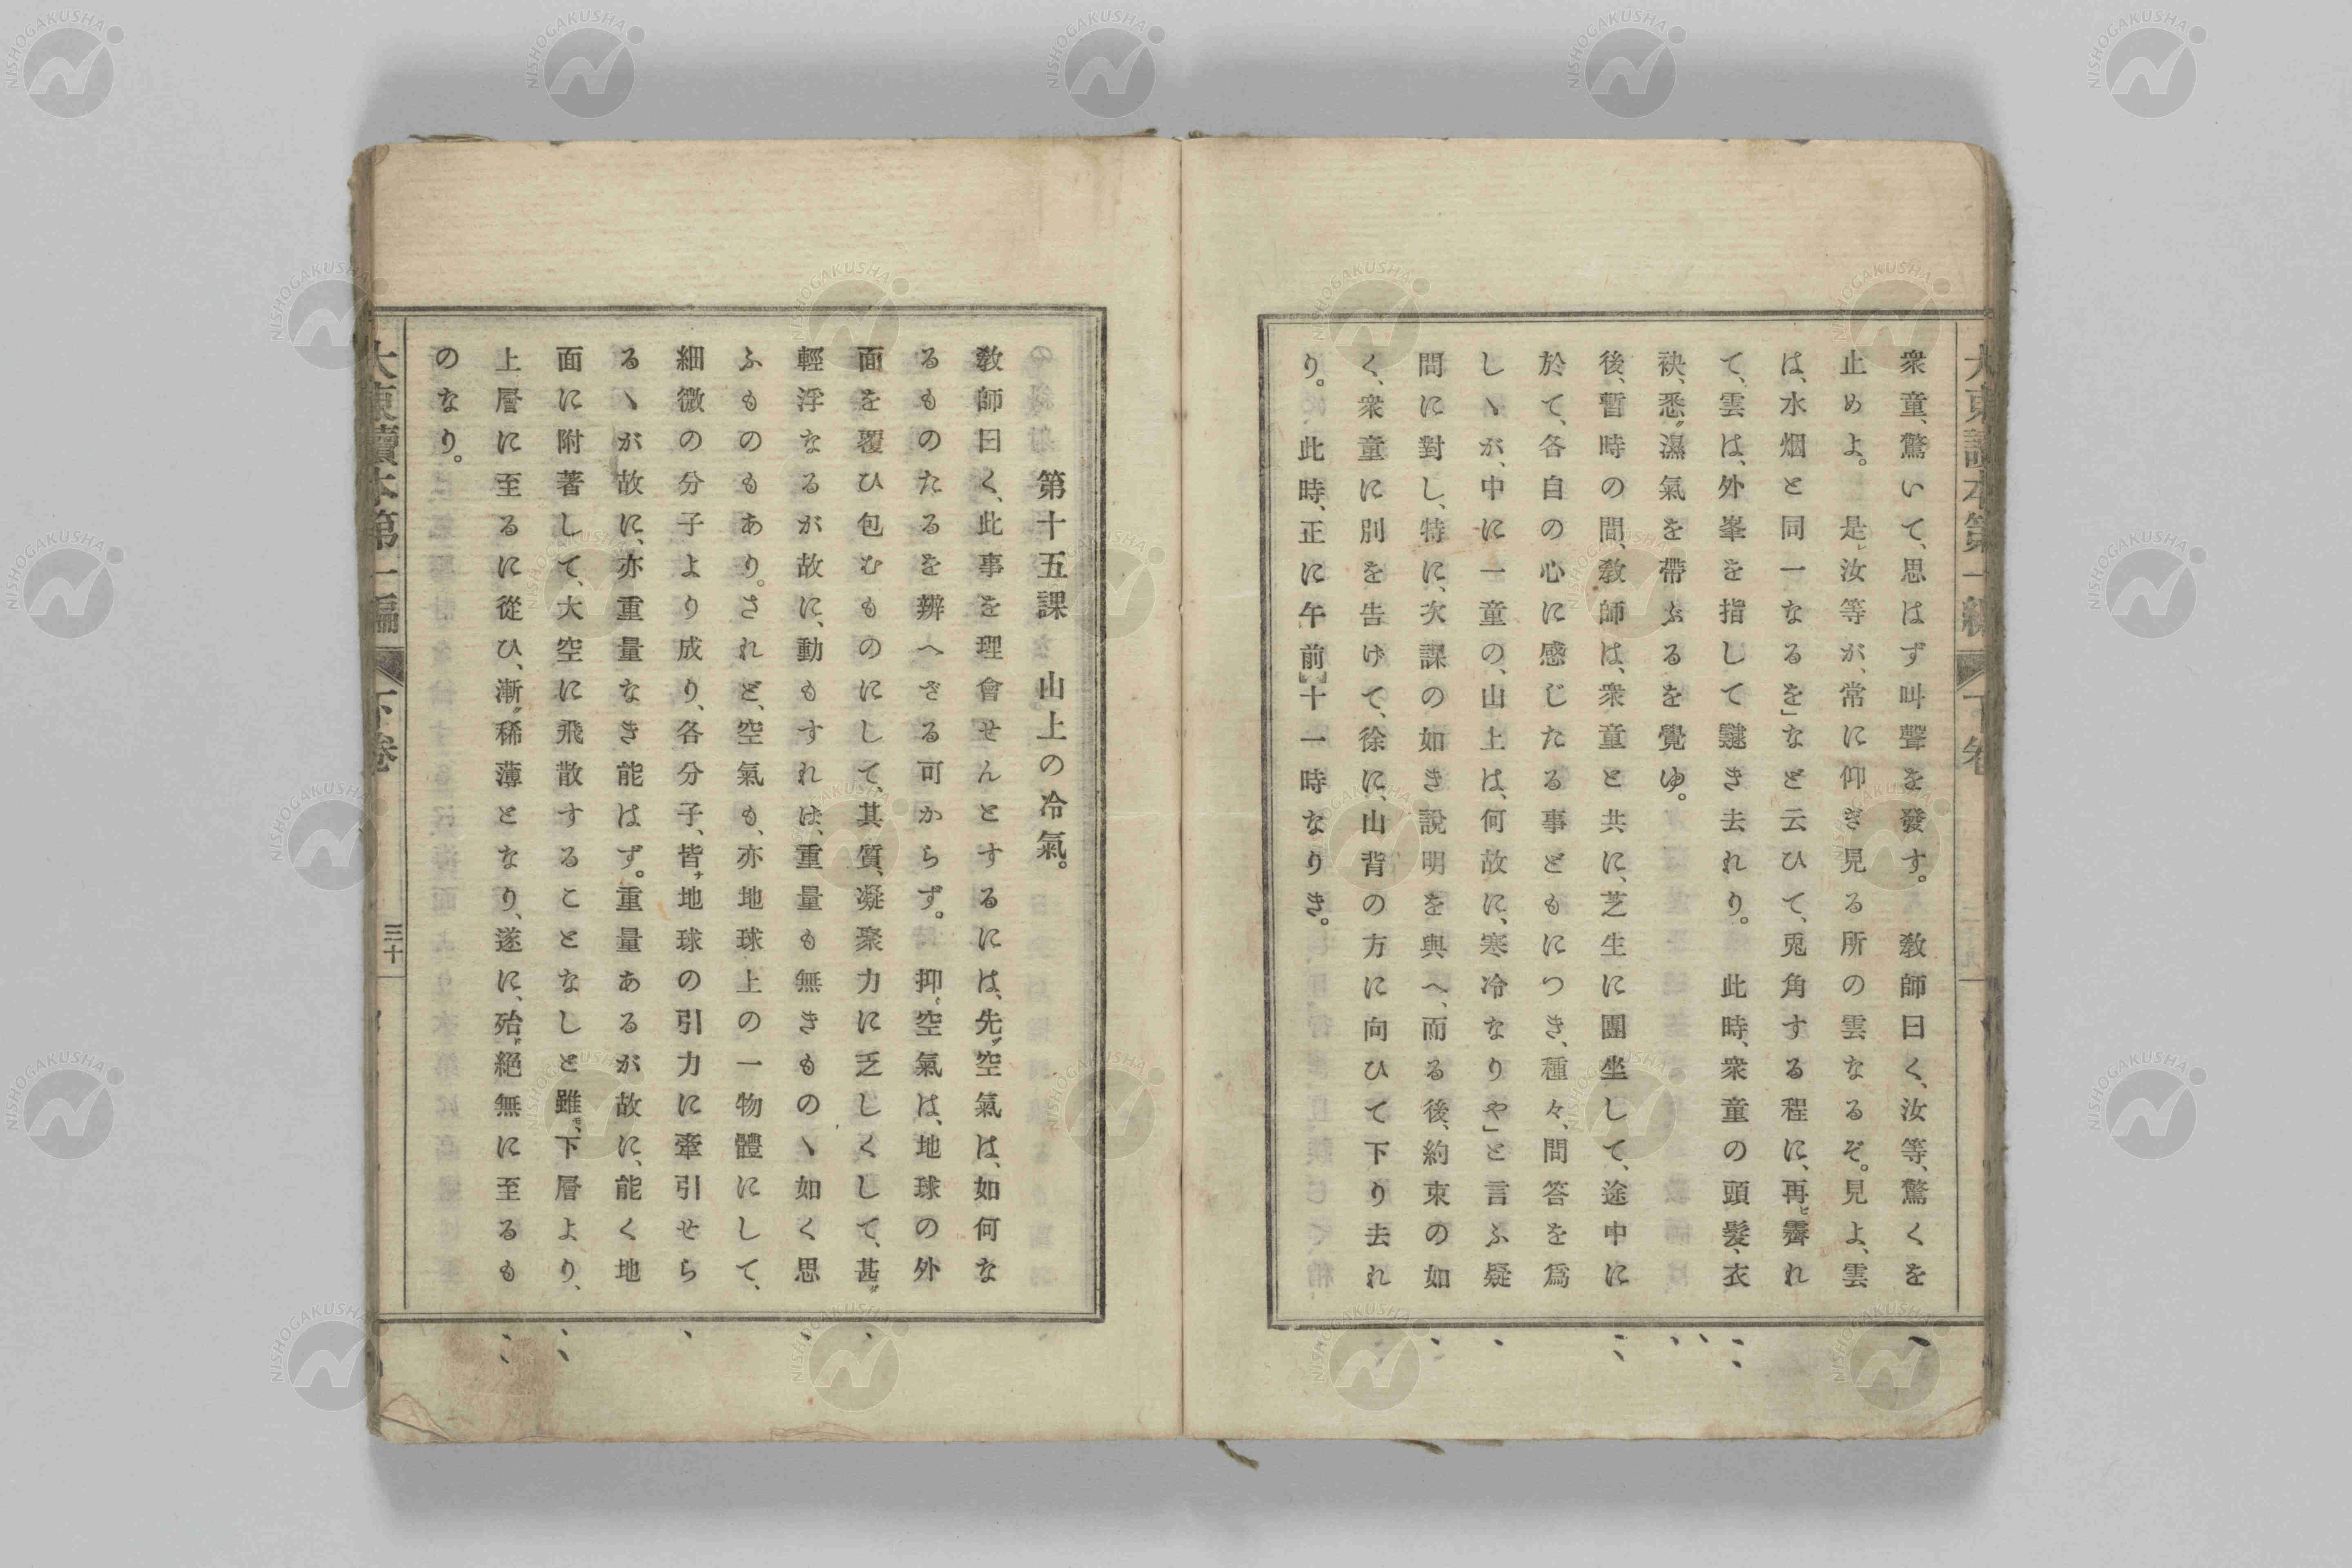 衆童、驚いて、思はず叫聲を發す。　教師曰く、汝等、驚くを
止めよ。　是レ汝等が、常に仰ぎ見る所の雲なるぞ。見よ、雲
は、水烟と同一なるを」など云ひて、兎角する程に、再ビ霽れ
て、雲は、外峯を指して靆き去れり。　此時、衆童の頭髮、衣
袂、悉ク濕氣を帶ぶるを覺ゆ。
後、暫時の間、教師は、衆童と共に、芝生に團坐して、途中に
於て、各自の心に感じたる事どもにつき、種々、問答を爲
しヽが、中に一童の、山上は、何故に、寒冷なりや」と言ふ疑
問に對し、特に、次課の如き說明を與へ、而る後、約束の如
く、衆童に別を告げて、徐に、山背の方に向ひて下り去れ
り。　此時、正に午前十一時なりき。
大東讀本第一編　下卷
第十五課　山上の冷氣。
教師曰く、此事を理會せんとするには、先ヅ空氣は、如何な
るものたるを辨へざる可からず。　抑モ空氣は、地球の外
面を覆ひ包むものにして、其質、凝聚力に乏しくして、甚ダ
輕浮なるが故に、動もすれは、重量も無きものヽ如く思
ふものもあり。されど、空氣も、亦地球上の一物體にして、
細微の分子より成り、各分子、皆ナ地球の引力に牽引せら
るヽが故に、亦重量なき能はず。重量あるが故に、能く地
面に附著して、大空に飛散することなしと雖モ、下層より、
上層に至るに從ひ、漸ク稀薄となり、遂に、殆ド絕無に至るも
のなり。
大東讀本第一編　下卷　三十
NISHOGAKUSHA